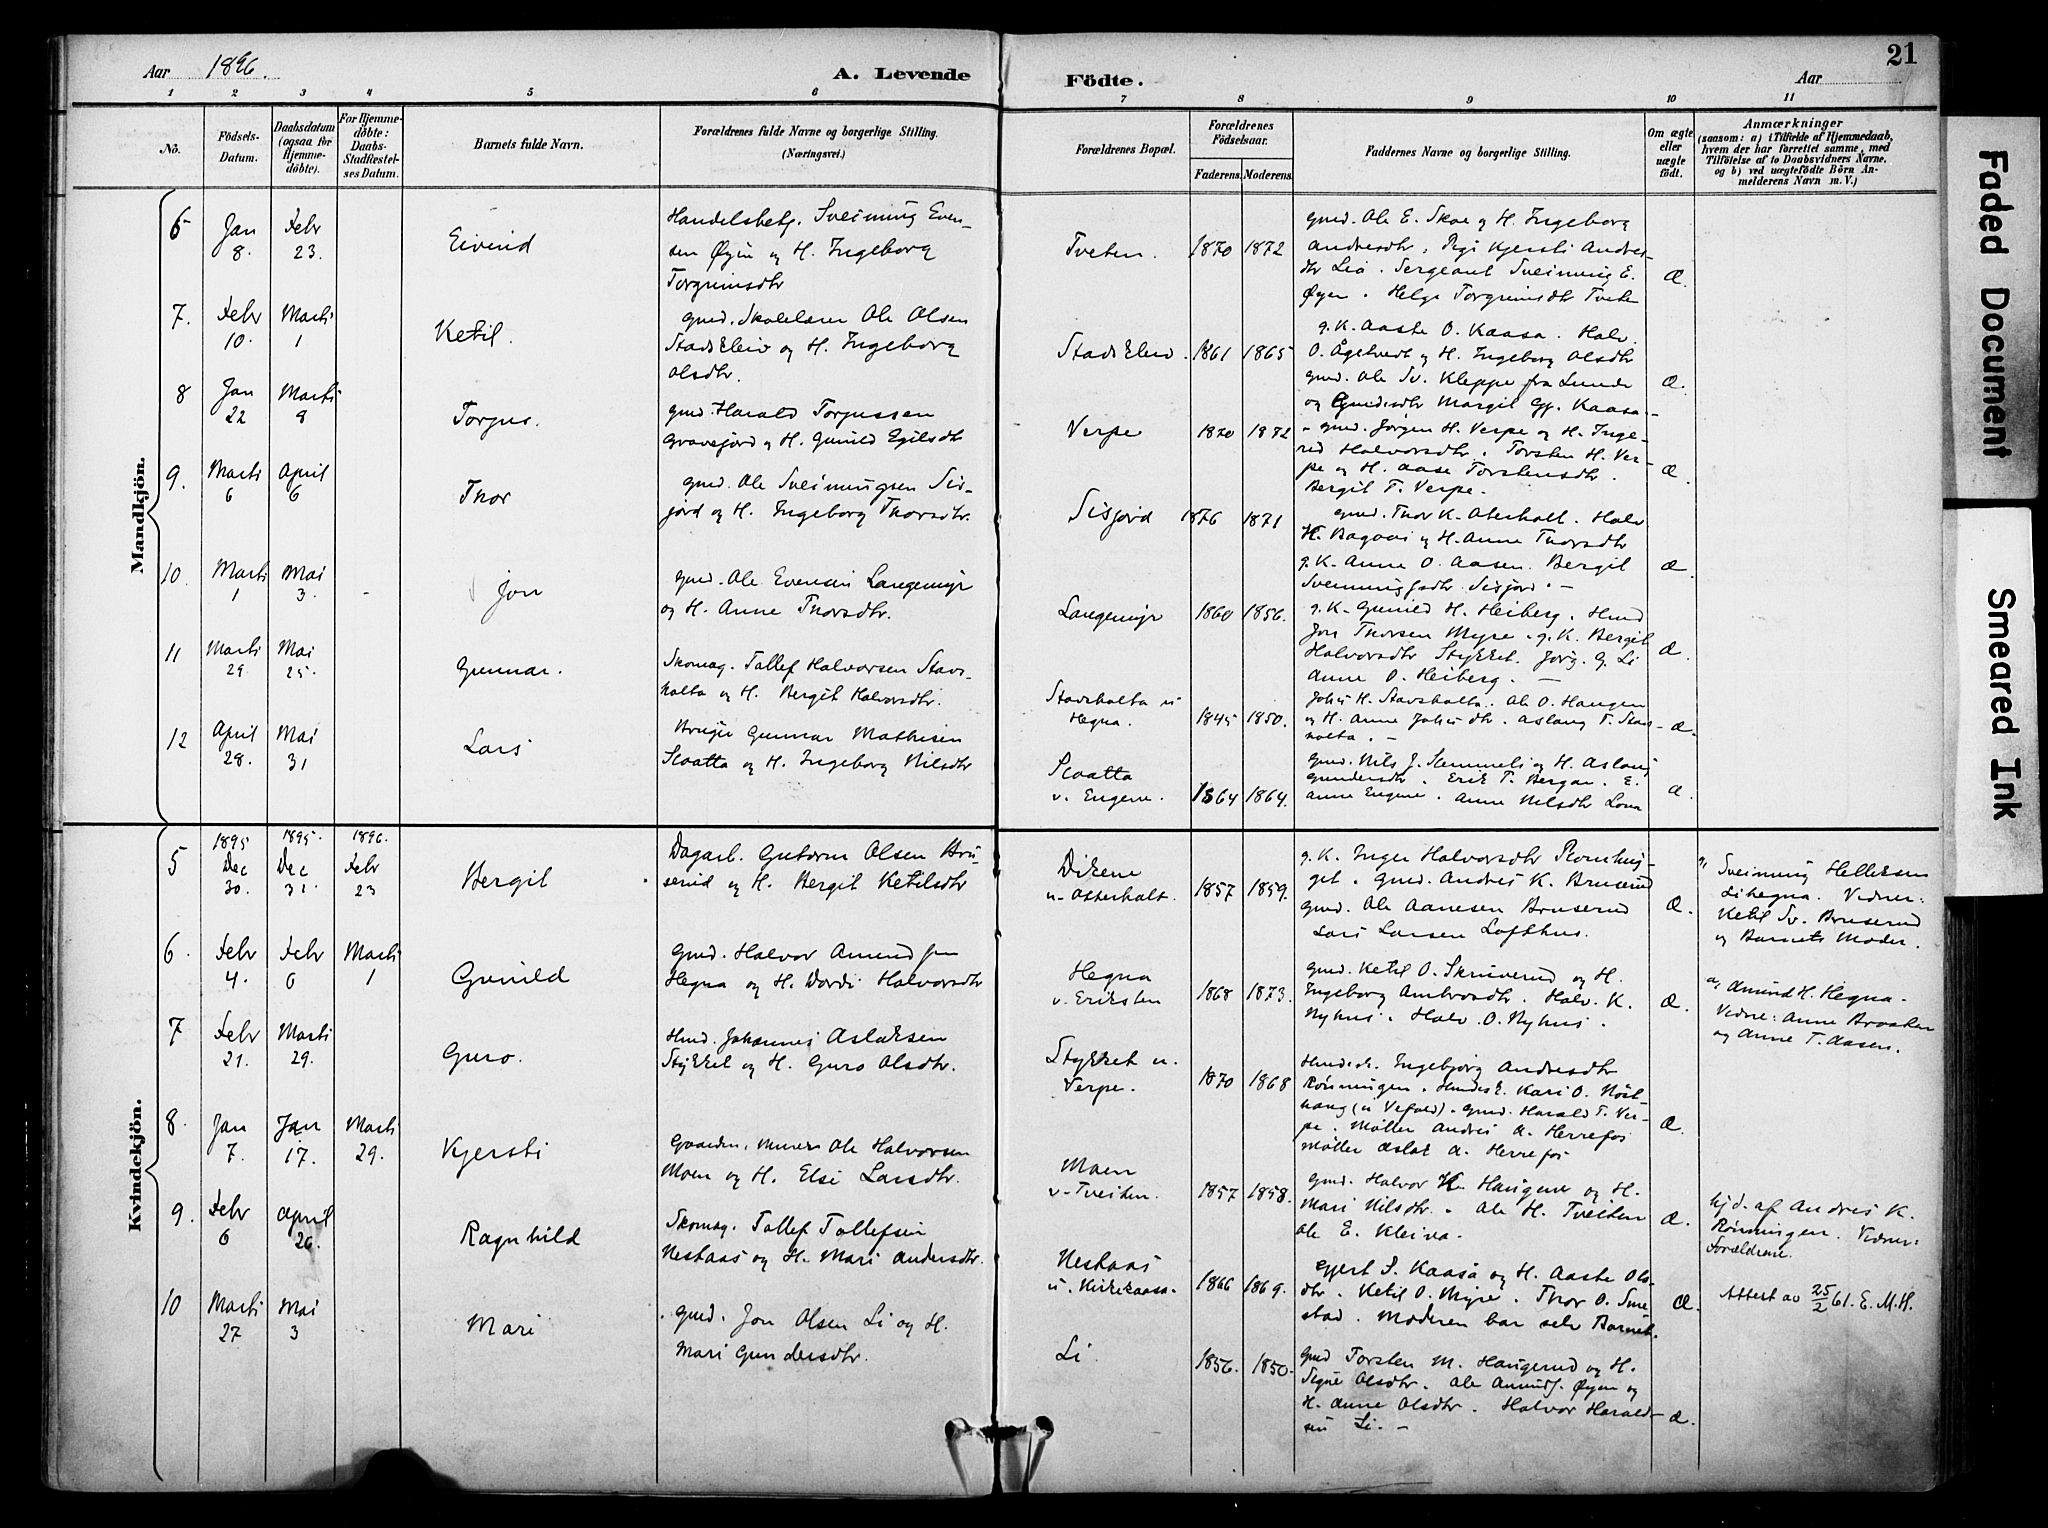 Aar 1896.
A. Levende
Födte.
Aar
21
1 2 3 4 5 6 7 8 9 10 11
No.
Födsels-
Datum.
Daabsdatum
(ogsaa for
Hjemme-
döbte).
For Hjemme-
döbte:
Daabs-
Stadfæstel-
ses Datum.
Barnets fulde Navn.
Forældrenes fulde Navne og borgerlige Stilling.
(Næringsvei.)
Forældrenes Bopæl.
Forældrenes
Födselsaar.
Faderens. Moderens.
Faddernes Navne og borgerlige Stilling.
Om ægte
eller
uægte
födt.
Anmærkninger
(saasom: a) i Tilfælde af Hjemmedaab,
hvem der har forrettet samme, med
Tilföielse af to Daabsvidners Navne,
og b) ved uægtefödte Börn An-
melderens Navn m. V.)
Mandkjön.
6
Jan
8.
Febr
23.
Eivind
Handelsbetj. Sveinung Even-
sen Øyen og H. Ingeborg
Torgrimsdtr
Tveten.
1870
1872
gmd. Ole E. Skoe og H. Ingeborg
Andresdtr, Pige Kjersti Andres-
dtr Lio. Sergeant Sveinung E.
Øyen. Helge Torgrimsdtr Tveten
Æ.
7.
Febr
10.
Marti
1
Ketil.
gmd. Skolelærer Ole Olsen
Stadskleiv og H. Ingeborg
Olsdtr.
Stadskleiv.
1861
1865
g. K. Aaste O. Kaasa. Halv.
O. Ågetvedt og H. Ingeborg Olsdtr
gmd. Ole Sv. Kleppe fra Lunde
og Margit Gj. Kaasa.
Æ.
8
Jan
22
Marti
8
Torgus.
gmd. Harald Torgussen
Gravejord og H. Gunild Egilsdtr
Verpe
1870
1872
gmd. Jørgen H. Verpe og H. Inge-
red Halvorsdtr. Torsten H. Ver-
pe og H. Aase Torstensdtr.
Bergit T. Verpe.
Æ.
9.
Marti
6
April
6
Thor
gmd. Ole Sveinungsen Sis-
jord og H. Ingeborg Thorsdtr.
Sisjord
1876
1871
gmd. Thor K. Oterholt. Halv
H. Bagaas og H. Anne Thorsdtr
g. K. Anne O. Aasen. Bergit
Sveinungsdtr Sisjord. —
Æ.
10.
Marti
1
Mai
3.
Jon
gmd. Ole Evensen Langemyr
og H. Anne Thorsdtr.
Langemyr
1860
1856.
g. K. Gunild H. Heiberg. Hmd
Jon Thorsen Myre. g. K. Bergit
Halvorsdtr Stykket. Jørg. G. Li
Anne O. Heiberg. —
Æ.
11
Marti
29.
Mai
25.
Gunnar.
Skomag. Tollef Halvorsen Stavs-
holta og H. Bergit Halvorsdtr.
Stavsholta u
Hegna.
1845
1850.
H. Stavsholta. Ole O. Haugen
og H. Anne dtr. Aslaug T. Stavs-
holta. —
Æ.
12
April
28.
Mai
31
Lars
Bruger Gunnar Mathisen
Slaatta og H. Ingeborg Nilsdtr
Slaatta
u. Eugene.
1864
1864.
gmd. Nils J. Slemmeli og H. Aslaug
Gundersdtr. Erik T. Bergan. E.
Anne Eugene. Anne Nilsdtr Lona
Æ.
Kvindekjön.
5
1895
Dec
30.
1895.
Dec
31.
1896.
Febr
23
Bergit
Dagarb. Gutorm Olsen Bru-
serud og H. Bergit Ketilsdtr
Dikene
u. Otterholt.
1857
1859.
g. K. Inger Halvorsdtr Romhus-
get. Gmd. Andres K. Bruserud
gmd. Ole Aanesen Bruserud
Lars Larsen Lofthus.
Æ.
a, Sveinung Helleksen
Lihegna. Vidner:
Ketil Sv. Bruserud
og Barnets Moder.
6.
Febr
4.
Febr
6
Marti
1
Gunild
Gmd. Halvor Amundsen
Hegna og H. Dordi Halvorsdtr
Hegna
v. Eriksten
1868
1873.
gmd. Ketil O. Skruverud og H.
Ingeborg Ambrosdtr. Halv. K.
Nyhus. Halv. O. Nyhus.
Æ.
a, Amund H. Hegna.
Vidne: Anne Braaten
og Anne T. Aasen.
7
Febr
21.
Marti
29.
Guro.
Hmd. Johannes Aslaksen
Stykket og H. Guro Olsdtr.
Stykket u.
Verpe.
1870
1868
Ingebjørg Andresdtr
Rønningen. Kari O. Nøst-
haug (u Vefald). gmd. Harald T. Ver-
pe. Møller Andres A. Herrefos
Møller Aslak A. Herrefos
Æ.
8.
Jan
7.
Jan
17.
Marti
29.
Kjersti
Gaardm. Murer Ole Halvorsen
Moen og H. Else Larsdtr.
Moen
u. Tveiten.
1857
1858.
gmd. Halvor K. Haugene og H.
Mari Nilsdtr. Ole H. Tveiten
Ole E. Kleiva.
Æ.
hjd. af Andres K.
Rønningen. Vidner:
Forældrene.
9.
Febr
6
April
26.
Ragnhild
Skomag. Tollef Tollefsen
Neshaas og H. Mari Andersdtr.
Neshaas
u. Kirkekaasa.
1866
1869.
Gjert S. Kaasa og H. Aaste Ols-
dtr. Ketil O. Myre. Thor O. Sme-
stad. Moderen bar selv Barnet.
Æ.
Attert av 25/2 61. E. M. H.
10
Marti
27
Mai
3
Mari
gmd. Jon Olsen Li og H.
Mari Gundersdtr.
Li.
1856.
1850.
gmd Torsten M. Haugerud og H.
Signe Olsdtr. Ole Amunds. Øyen og
H. Anne Olsdtr. Halvor Harald-
sen Li. —
Æ.
Faded Document
Smeared Ink